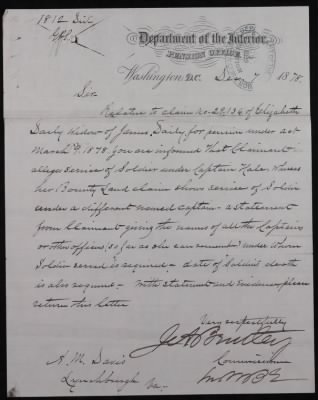 1812 Div
Department of the Interior,
PENSION OFFICE,
Washington, D.C. Dec 7 1878.
Sir
Relative to claim No. 29,134 of Elizabeth
Daily widow of James Daily, for pension under act
March 9, 1878. You are informed that Claimant
alleges service of Soldier under Captain Hale, whereas
her Bounty Land claim shows service of Soldier
under a different named captain - a statement
from Claimant giving the names of all the Captains
or other officers (so far as she can remember) under whom
Soldier served is required - date of Soldier's death
is also required - With statement and evidence please
return this letter
Very respectfully
J A Bentley
Commissioner
A. M. Davis
Lynchburgh Va-